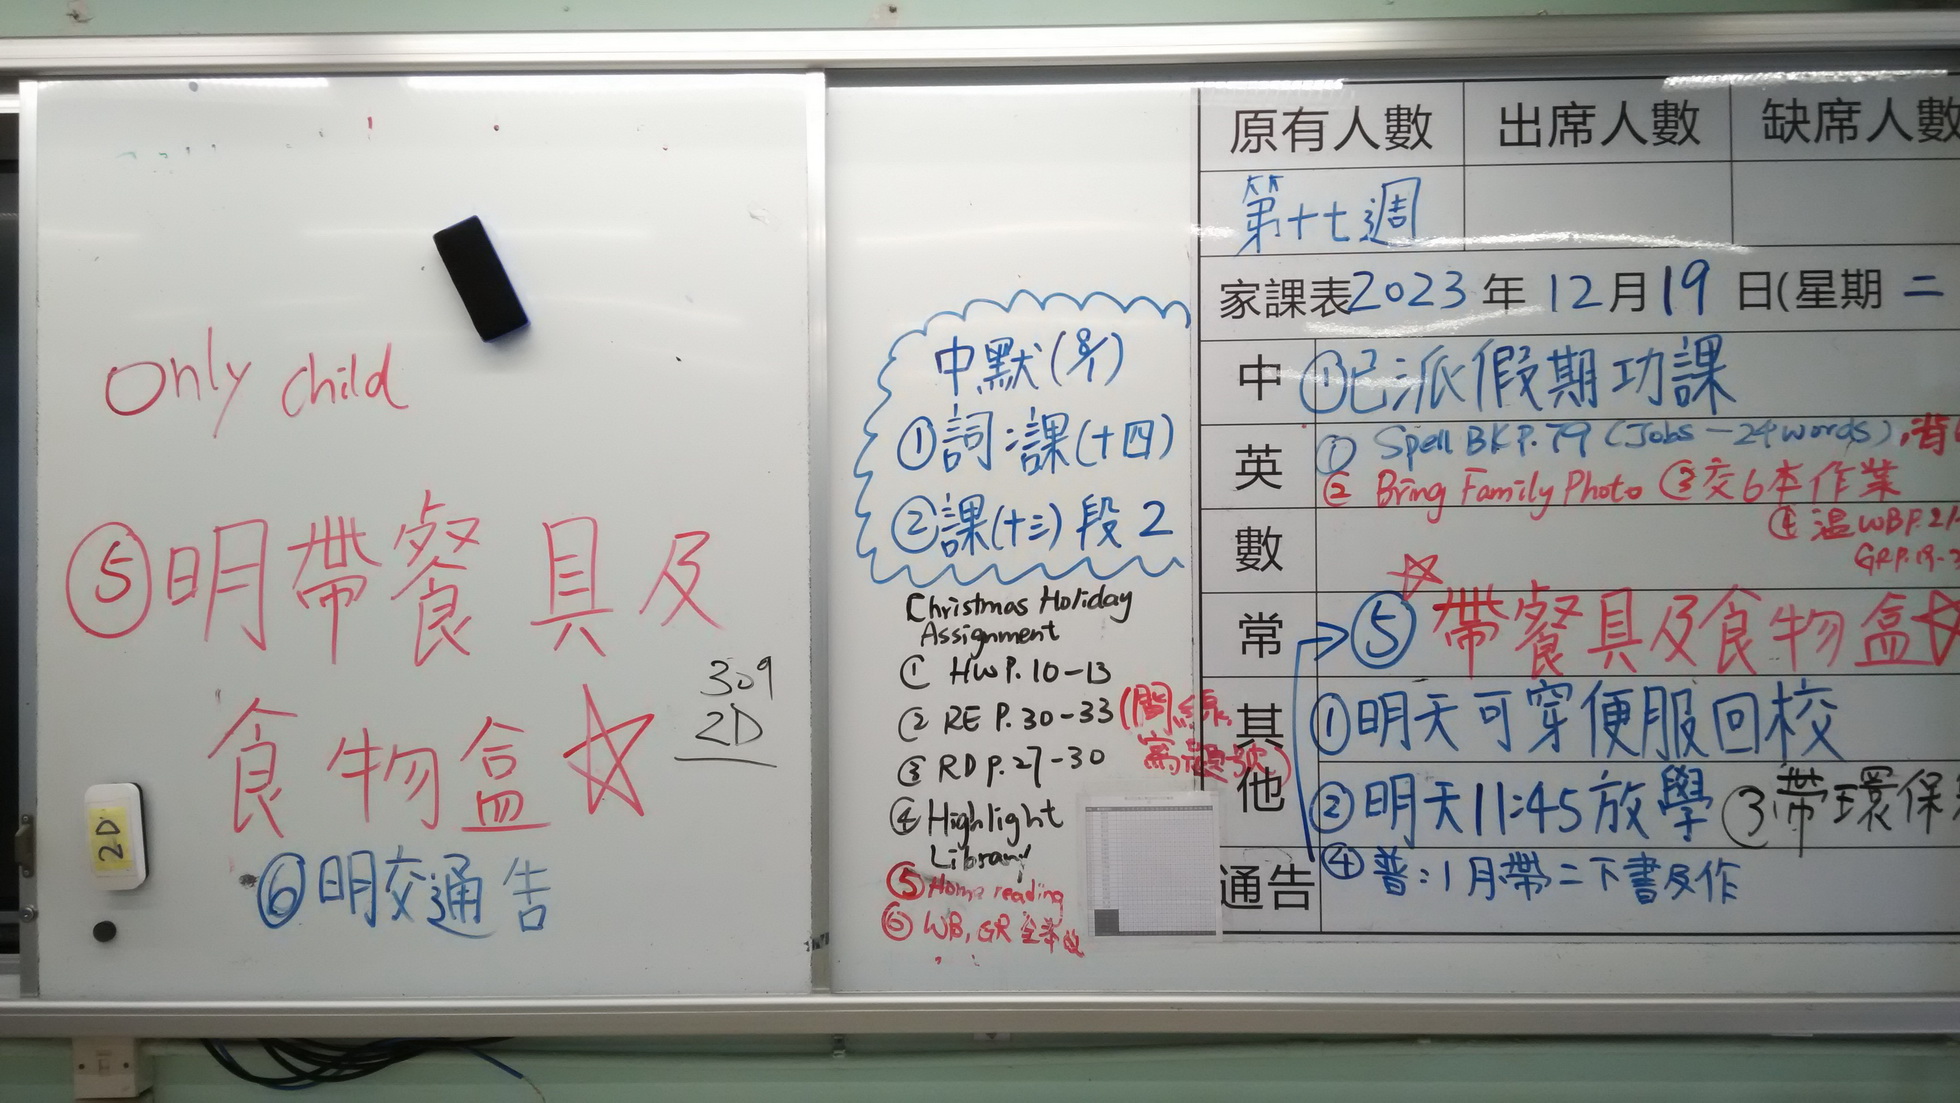 Only child
⑤明帶餐具及
食物盒☆
309
2D
⑥明交通告
2D
中默(8/1)
①詞:課(十四)
②課(十三)段2
Christmas Holiday
Assignment
① HW P.10-13
② RE P.30-33 (間線,
寫題號)
③ RD P.27-30
④ Highlight
Library
⑤ Home reading
⑥ WB, GR
原有人數 出席人數 缺席人數
第十七週
家課表2023年12月19日(星期二
中 ①已派假期功課
英 ① Spell BK P.79 (Jobs-24words),背
② Bring Family Photo ③交6本作業
④溫WB P.21
GR P.19-3
數
常 ⑤帶餐具及食物盒☆
其他 ①明天可穿便服回校
②明天11:45放學 ③帶環保
通告 ④普:1月帶二下書及作